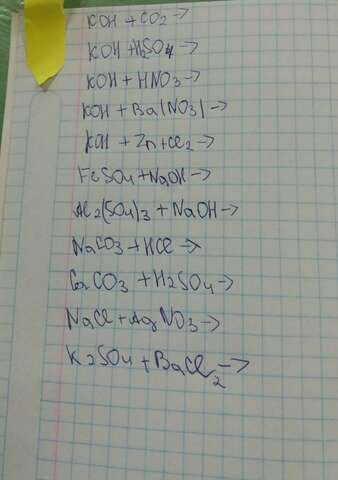 KOH + CO2 →
KOH + H2SO4 →
KOH + HNO3 →
KOH + Ba(NO3) →
KOH + Zn + Cl2 →
FeSO4 + NaOH →
Al2(SO4)3 + NaOH →
NaCO3 + HCl →
CaCO3 + H2SO4 →
NaCl + AgNO3 →
K2SO4 + BaCl2 →